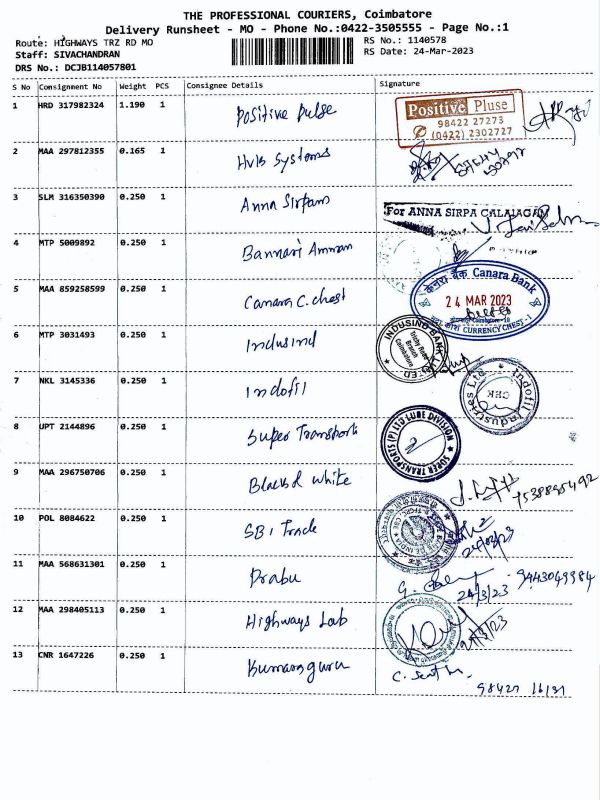 THE PROFESSIONAL COURIERS, Coimbatore
Delivery Runsheet - MO - Phone No.:0422-3505555 - Page No.:1
Route: HIGHWAYS TRZ RD MO
RS No.: 1140578
Staff: SIVACHANDRAN
RS Date: 24-Mar-2023
DRS No.: DCJB114057801
S No Consignment No Weight PCS Consignee Details Signature
1 HRD 317982324 1.190 1 Positive pulse
Positive Pluse
98422 27273
(0422) 2302727
2 MAA 297812355 0.165 1 HVB Systems
3 SLM 316350390 0.250 1 Anna Sirpam
For ANNA SIRPA CALAIAGAM
4 MTP 5009892 0.250 1 Bannari Amman
5 MAA 859258599 0.250 1 Canara C. chest
केनरा बैंक Canara Bank
24 MAR 2023
CURRENCY CHEST - I
6 MTP 3031493 0.250 1 Indusind
INDUSIND BANK LIMITED
Trichy Road
Branch
Coimbatore
7 NKL 3145336 0.250 1 Indofil
Indofil Industries Ltd
CBE
8 UPT 2144896 0.250 1 Super Transports
SUPER TRANSPORTS (P) LTD LUBE DIVISION
9 MAA 296750706 0.250 1 Black & white
10 POL 8084622 0.250 1 SBI Trade
11 MAA 568631301 0.250 1 Prabu
24/3/23 9443049984
12 MAA 298405113 0.250 1 Highways Lab
24/3/23
13 CNR 1647226 0.250 1 Kumaraguru